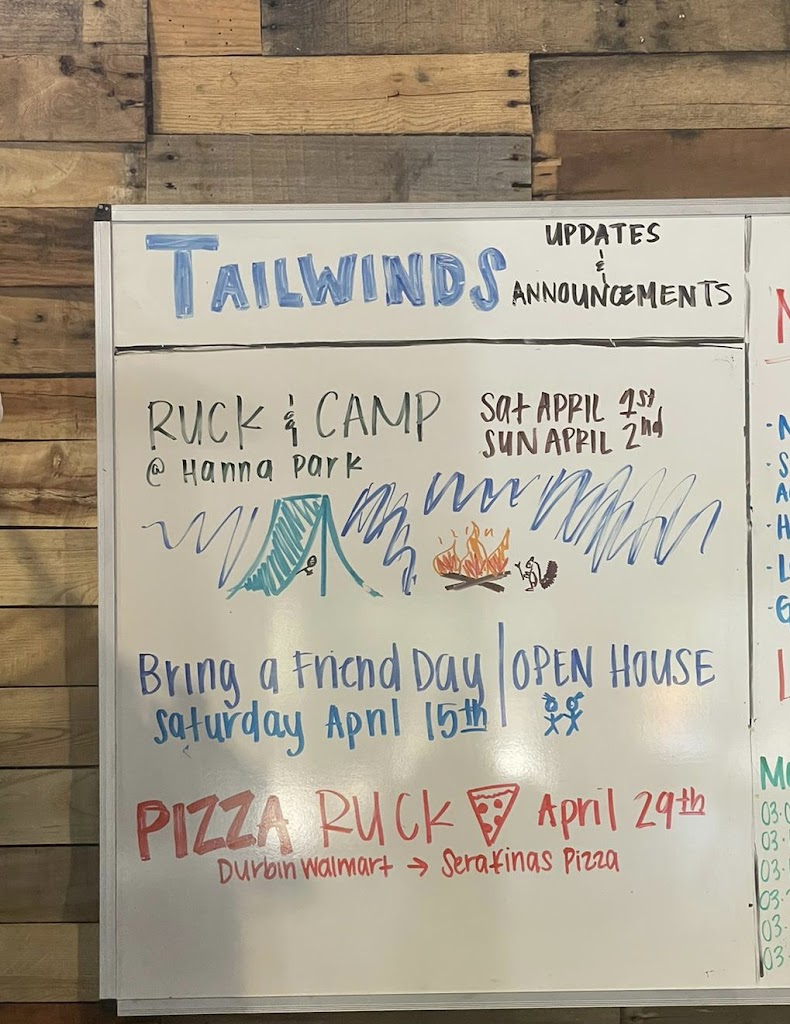 TAILWINDS
UPDATES
&
ANNOUNCEMENTS
RUCK & CAMP
@ Hanna Park
Sat APRIL 1st
SUN APRIL 2nd
Bring a Friend Day | OPEN HOUSE
Saturday April 15th
PIZZA RUCK April 29th
Durbin Walmart → Serafinas Pizza
03.
03.
03.
03.
03.
03.